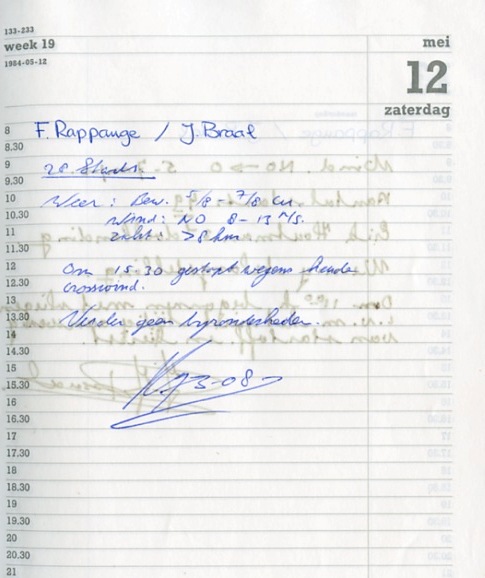 133-233
week 19
mei
1984-05-12
12
zaterdag
8 F. Rappange / J. Braaf
8.30
9 28 Starts.
9.30
10 Weer: Bew. 5/8 - 7/8 cu
10.30 Wind: NO 8-13 m/s.
11 zicht: >8 km
11.30
12 Om 15.30 gestopt wegens harde
12.30 crosswind.
13
13.30 Verder geen byzonderheden.
14
14.30
15
15.30
16
16.30
17
17.30
18
18.30
19
19.30
20
20.30
21